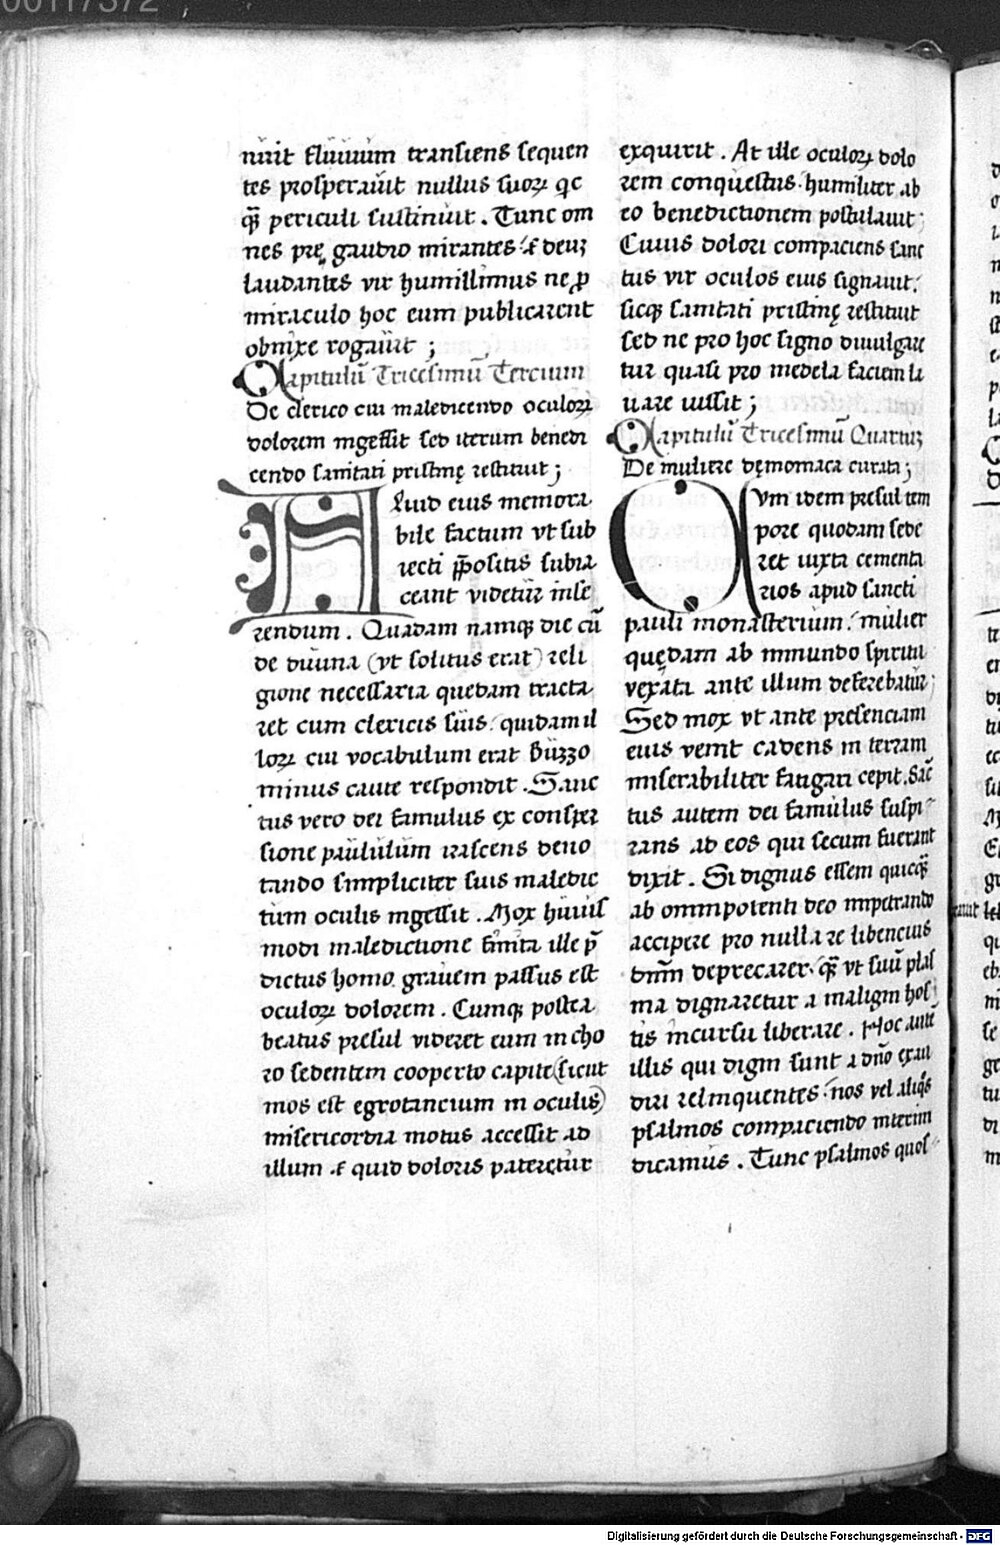 00117372
nuit fluuium transiens sequen
tes prosperauit nullus suoꝝ qc
qᷓ periculi sustinuit. Tunc om
nes prę gaudio mirantes: & deuʒ
laudantes vir humillimus ne ꝓ
miraculo hoc eum publicarent
obnixe rogauit ;
Capitulū Tricesimū Tercium
De clerico cui maledicendo oculoꝝ
dolorem ingessit sed iterum benedi
cendo sanitati pristinę restituit ;
Aliud eius memora
bile factum vt sub
iecti p̄positis subia
ceant videtur inse
rendum. Quadam namqꝫ die cū
de diuina (vt solitus erat) reli
gione necessaria quedam tracta
ret cum clericis suis: quidam il
loꝝ cui vocabulum erat Buzzo
minus caute respondit. Sanc
tus vero dei famulus ex consper
sione paululum irascens deno
tando simpliciter suis maledic
tum oculis ingessit. Mox huius
modi maledictione finita ille p̄
dictus homo grauem passus est
oculoꝝ dolorem. Cumqꝫ postea
beatus presul videret eum in cho
ro sedentem cooperto capite (sicut
mos est egrotancium in oculis)
misericordia motus accessit ad
illum & quid doloris pateretur
exquirit. At ille oculoꝝ dolo
rem conquestus: humiliter ab
eo benedictionem postulauit;
Cuius dolori compaciens sanc
tus vir oculos eius signauit:
sicqꝫ sanitati pristinę restituit
sed ne pro hoc signo diuulgare
tur quasi pro medela faciem la
uare iussit ;
Capitulū Tricesimū Quartuʒ
De muliere dęmoniaca curata ;
Cum idem presul tem
pore quodam sede
ret iuxta cementa
rios apud sancti
pauli monasterium: mulier
quędam ab inmundo spiritu
vexata ante illum deferebatur;
Sed mox vt ante presenciam
eius venit cadens in terram
miserabiliter fatigari cepit. Sāc
tus autem dei famulus suspi
rans ad eos qui secum fuerant
dixit. Si dignus essem quicqᷓ
ab omnipotenti deo impetrando
accipere pro nulla re libencius
dn̄m deprecarer: qᷓ vt suū plas
ma dignaretur a maligni hos
tis incursu liberare. Hoc autē
illis qui digni sunt a dn̄o exau
diri relinquentes: nos vel aliqͦs
psalmos compaciendo interim
dicamus. Tunc psalmos quos
Digitalisierung gefördert durch die Deutsche Forschungsgemeinschaft - DFG